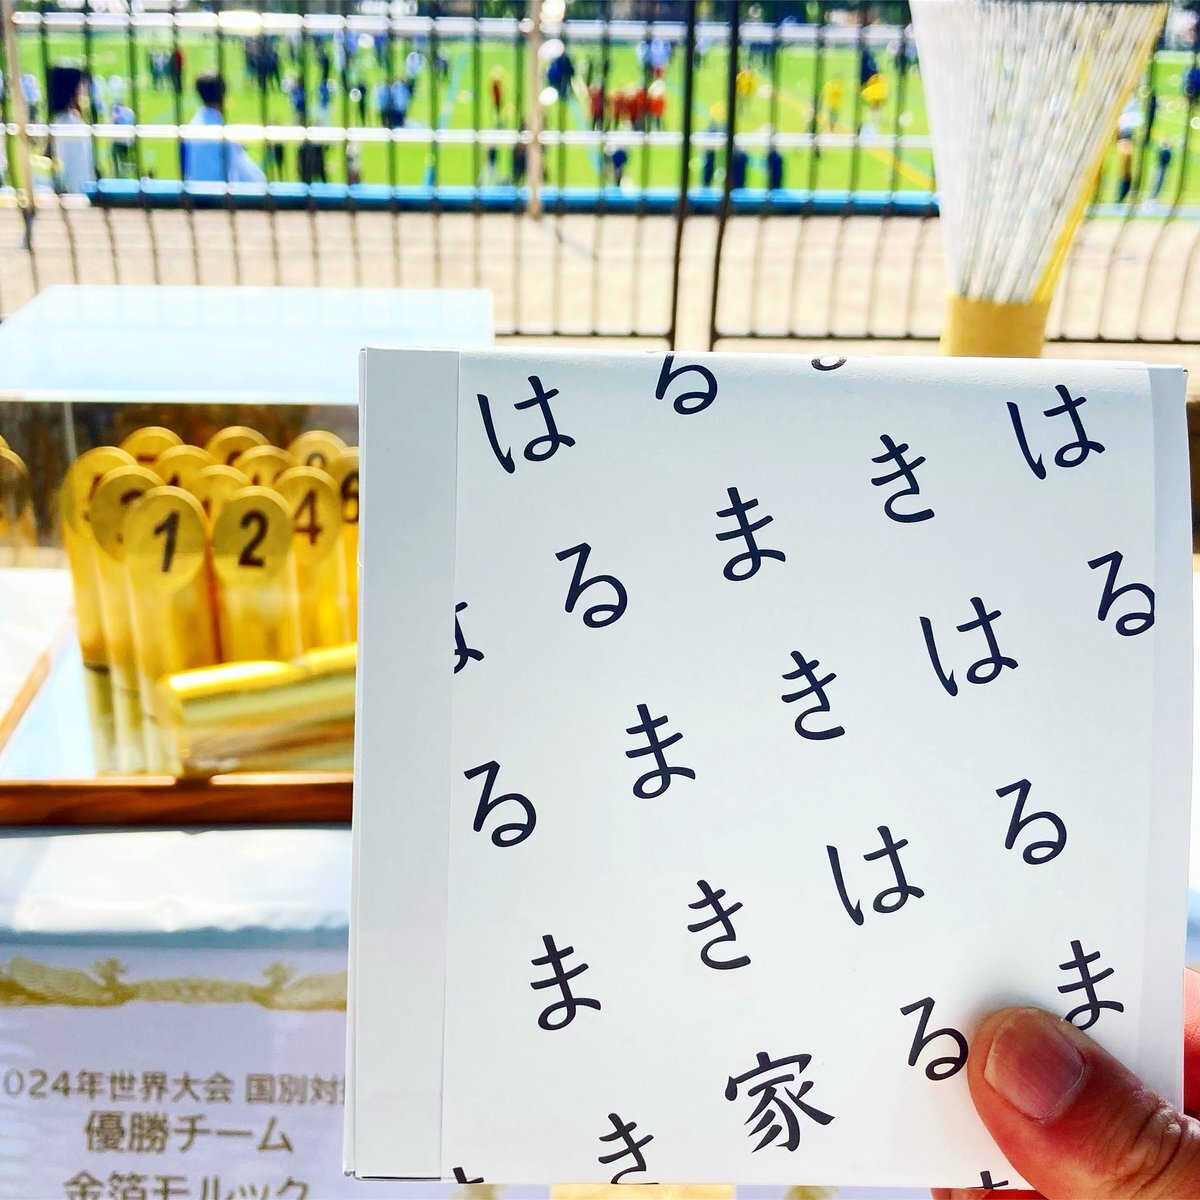 はる
きはるま
るまきはる
はるまき家
るまき
1 2 4 6
024年世界大会 国別対
優勝チーム
金箔モルック